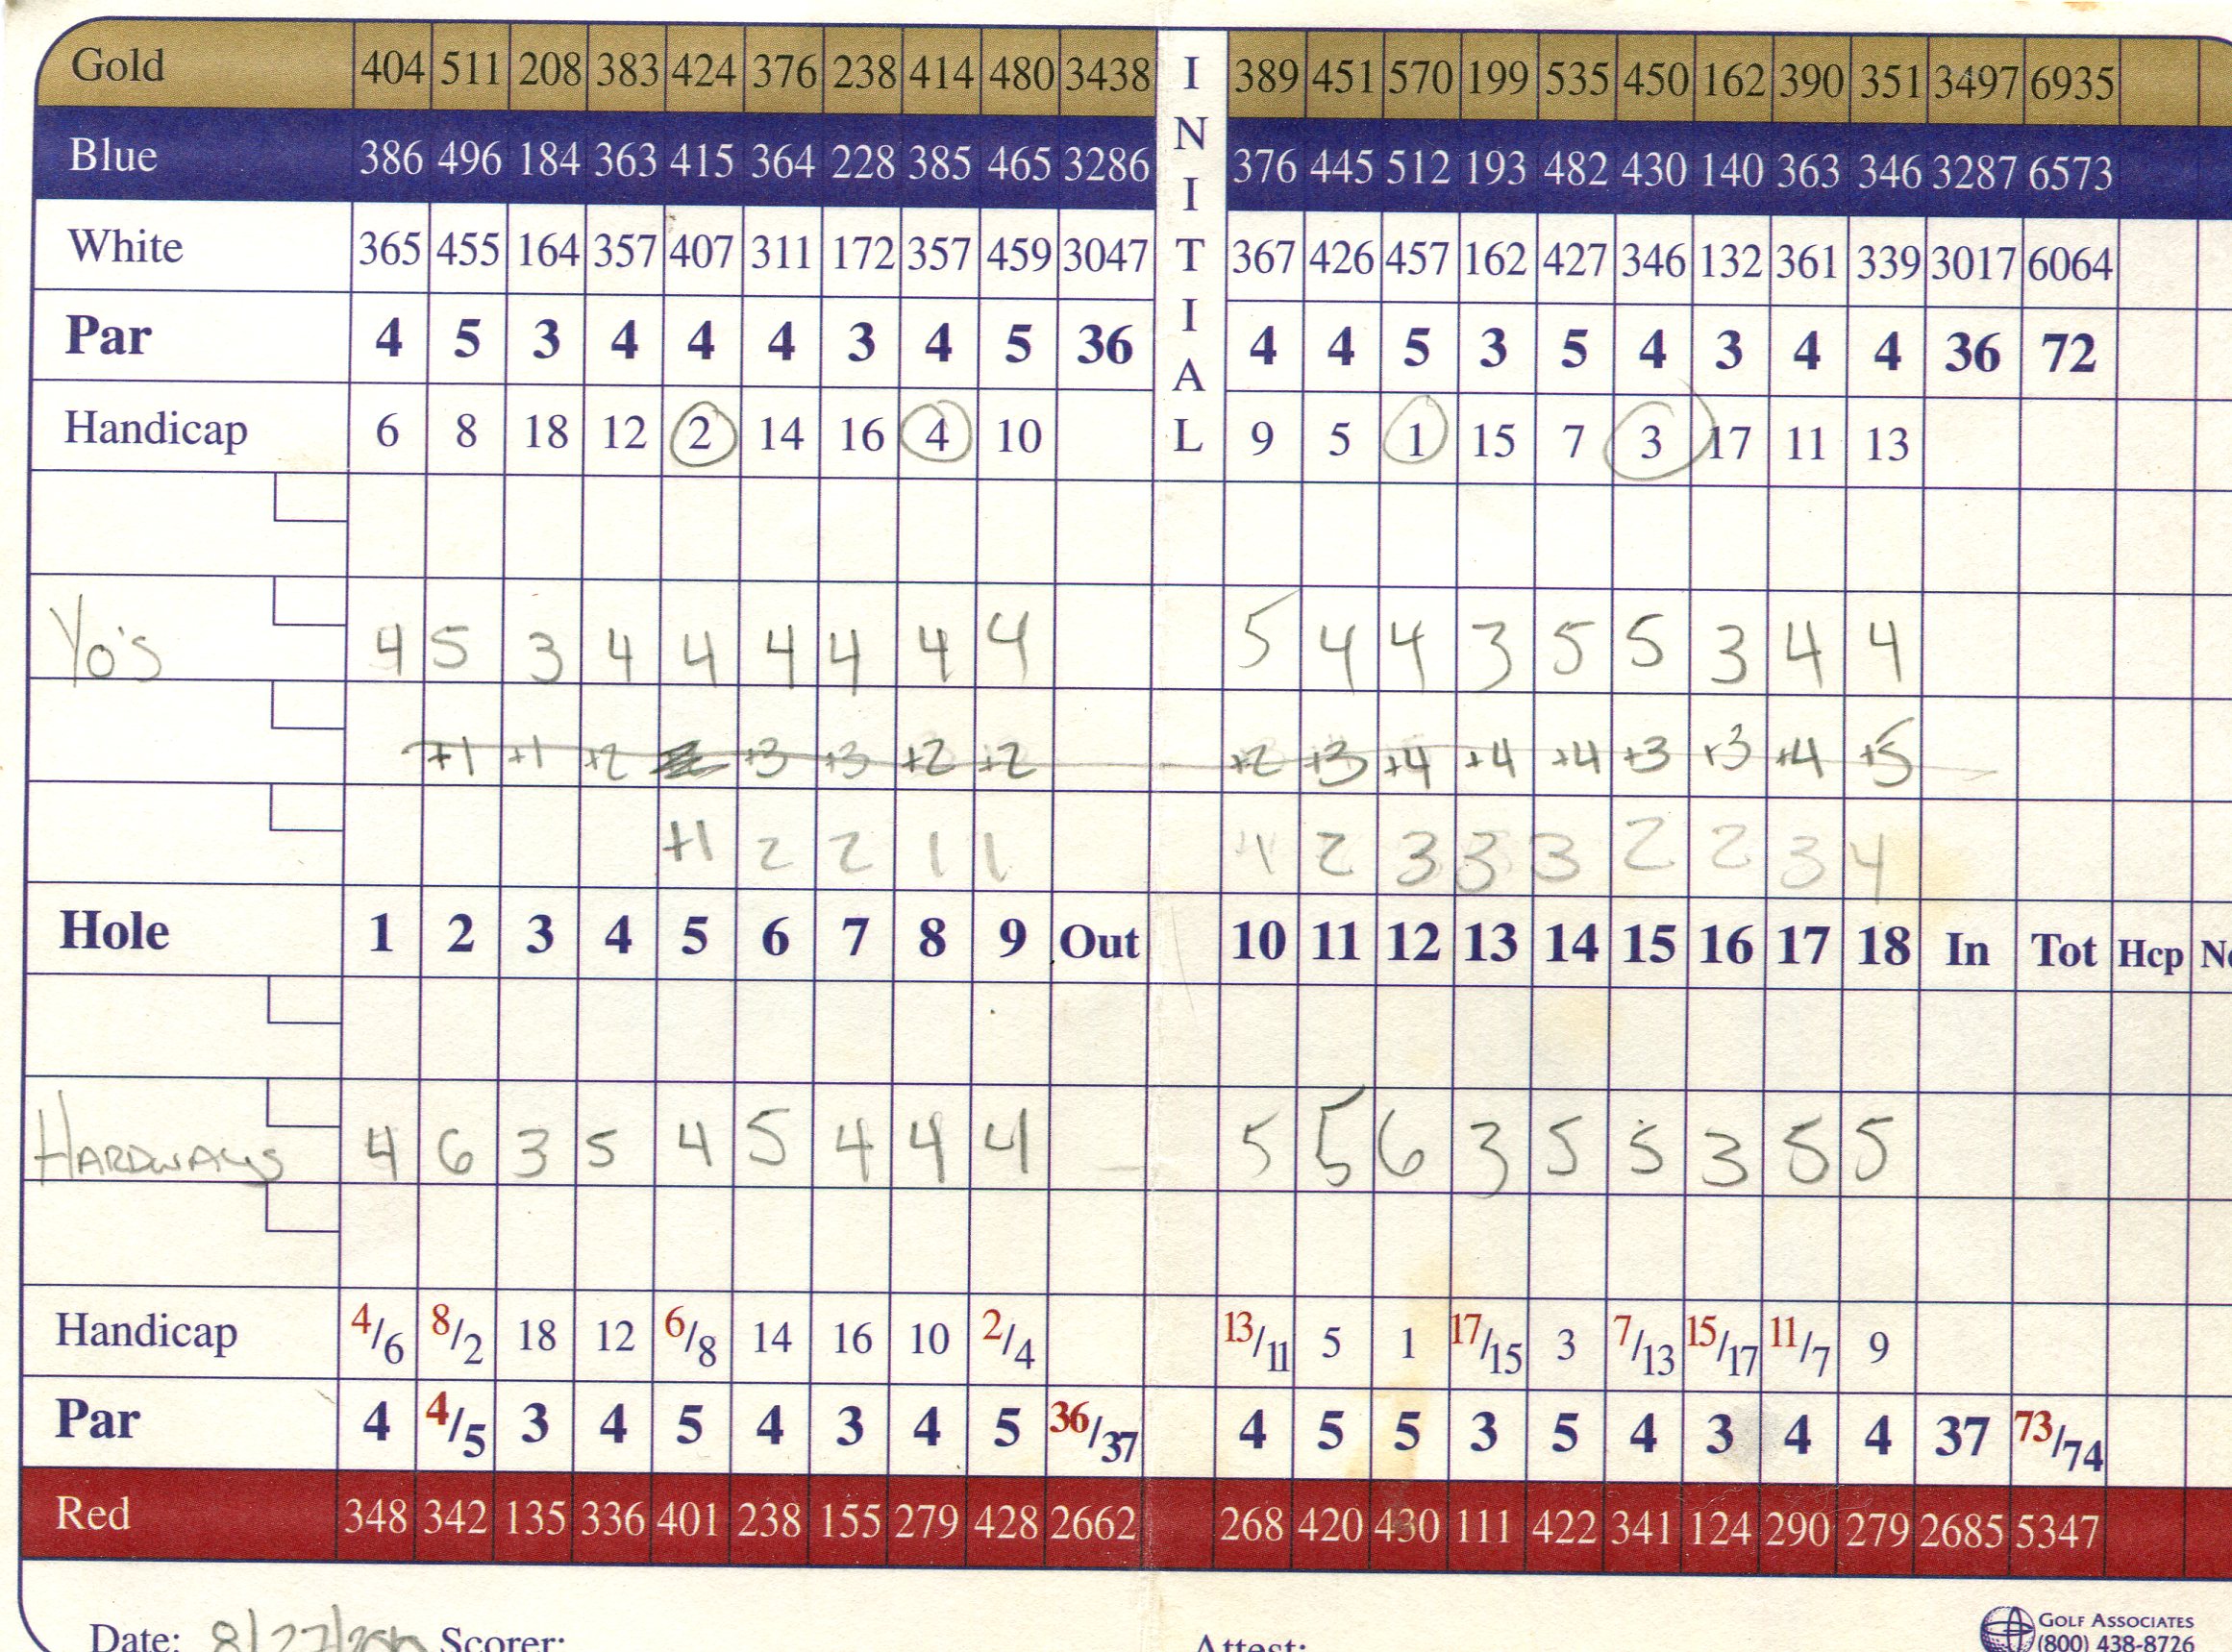 Gold 404 511 208 383 424 376 238 414 480 3438 389 451 570 199 535 450 162 390 351 3497 6935
Blue 386 496 184 363 415 364 228 385 465 3286 376 445 512 193 482 430 140 363 346 3287 6573
White 365 455 164 357 407 311 172 357 459 3047 367 426 457 162 427 346 132 361 339 3017 6064
Par 4 5 3 4 4 4 3 4 5 36 4 4 5 3 5 4 3 4 4 36 72
Handicap 6 8 18 12 2 14 16 4 10 9 5 1 15 7 3 17 11 13
INITIAL
Yo's 4 5 3 4 4 4 4 4 4 5 4 4 3 5 5 3 4 4
+1 +1 +2 +3 +3 +2 +2 +2 +3 +4 +4 +4 +3 +3 +4 +5
+1 2 2 1 1 1 2 3 3 3 2 2 3 4
Hole 1 2 3 4 5 6 7 8 9 Out 10 11 12 13 14 15 16 17 18 In Tot Hcp
HARDWAYS 4 6 3 5 4 5 4 4 4 5 5 6 3 5 5 3 5 5
Handicap 4/6 8/2 18 12 6/8 14 16 10 2/4 13/11 5 1 17/15 3 7/13 15/17 11/7 9
Par 4 4/5 3 4 5 4 3 4 5 36/37 4 5 5 3 5 4 3 4 4 37 73/74
Red 348 342 135 336 401 238 155 279 428 2662 268 420 430 111 422 341 124 290 279 2685 5347
Date: 8/27/ Scorer: Attest:
GOLF ASSOCIATES
(800) 438-8726